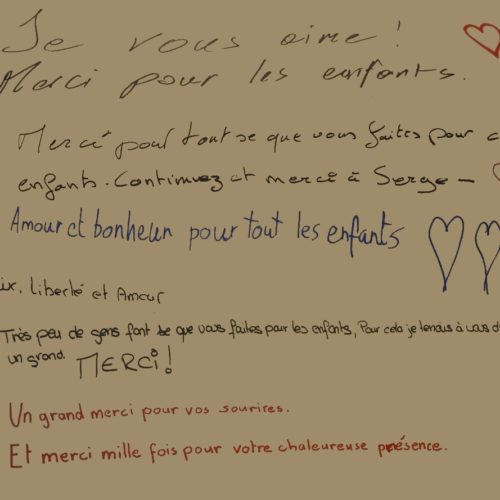 Je vous aime!
Merci pour les enfants.
Merci pour tout se que vous faites pour c
enfants. Continuez et merci à Serge –
Amour et bonheur pour tout les enfants
ix, liberté et Amour
Très peu de gens font se que vous faites pour les enfants, Pour cela je tendais à vous d
un grand MERCi!
Un grand merci pour vos sourires.
Et merci mille fois pour votre chaleureuse présence.